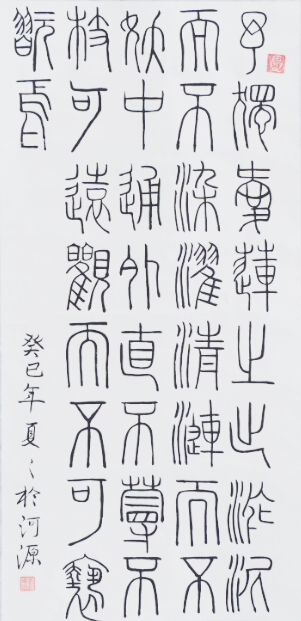 予獨愛蓮之出淤泥
而不染濯清漣而不
妖中通外直不蔓不
枝可遠觀而不可褻
翫焉
癸巳年夏之於河源